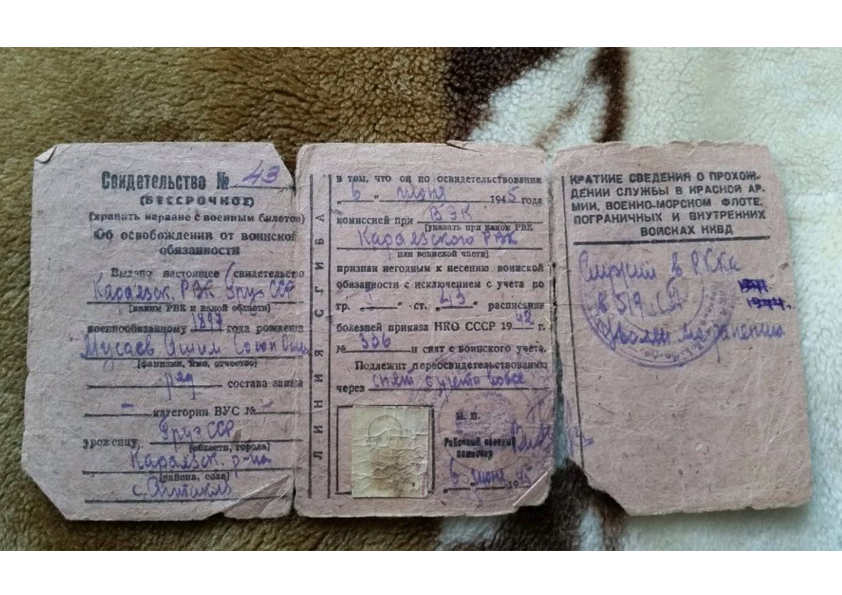 Свидетельство № 43
(БЕССРОЧНОЕ)
(хранить наравне с военным билетом)
Об освобождении от воинской
обязанности
Выдано настоящее свидетельство
РВК Груз ССР
(каким РВК и какой области)
военнообязанному 1897 года рождения
Мусаев
(фамилия, имя, отчество)
ряд состава запаса
— категории ВУС № —
уроженцу Груз ССР
(области, города)
р-на
(района, села)
с.
ЛИНИЯ СГИБА
в том, что он по освидетельствовании
"6" июня 1945 года
комиссией при ВЭК
(указать при каком РВК
Караязского РВК
или воинской части)
признан негодным к несению воинской
обязанности с исключением с учета по
гр. I ст. 43 расписания
болезней приказа НКО СССР 1942 г.
№ 336 и снят с воинского учета.
Подлежит переосвидетельствованию
через снят с учета вовсе
М. П.
Районный военный
комиссар
"6" июня 1945
КРАТКИЕ СВЕДЕНИЯ О ПРОХОЖ-
ДЕНИИ СЛУЖБЫ В КРАСНОЙ АР-
МИИ, ВОЕННО-МОРСКОМ ФЛОТЕ,
ПОГРАНИЧНЫХ И ВНУТРЕННИХ
ВОЙСКАХ НКВД
Служил в РККА